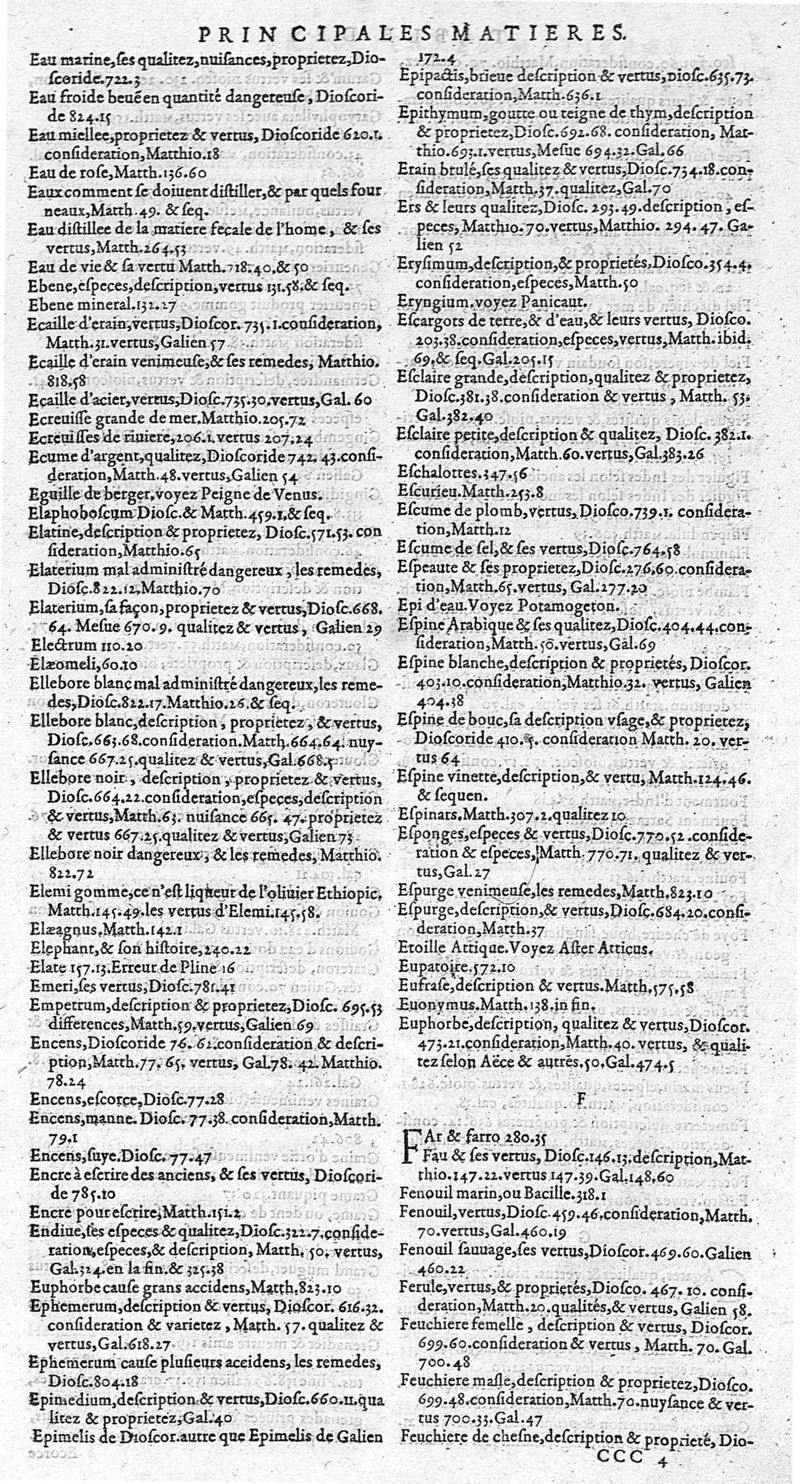 PRINCIPALES MATIERES.
Eau marine, ses qualitez, nuisances, proprietez, Dio-
scoride. 722.3
Eau froide beuë en quantité dangereuse, Dioscori-
de 824.15
Eau miellee, proprietez & vertus, Dioscoride 620.1.
consideration, Matthio. 18
Eau de rose, Matth. 136.60
Eaux comment se doiuent distiller, & par quels four
neaux, Matth. 49. & seq.
Eau distillee de la matiere fecale de l'home, & ses
vertus, Matth. 264.53
Eau de vie & sa vertu Matth. 718.40. & 50
Ebene, especes, description, vertus 131.58. & seq.
Ebene mineral. 132.27
Ecaille d'erain, vertus, Dioscor. 735.1. consideration,
Matth. 31. vertus, Galien 57
Ecaille d'erain venimeuse, & ses remedes, Matthio.
818.58
Ecaille d'acier, vertus, Diosc. 735.30. vertus, Gal. 60
Ecreuisse grande de mer. Matthio. 205.72
Ecreuisses de riuiere, 206.1. vertus 207.24
Ecume d'argent, qualitez, Dioscoride 742.43. consi-
deration, Matth. 48. vertus, Galien 54
Eguille de berger. voyez Peigne de Venus.
Elaphoboscum Diosc. & Matth. 459.1. & seq.
Elatine, description & proprietez, Diosc. 571.53. con
sideration, Matthio. 65
Elaterium mal administré dangereux, les remedes,
Diosc. 822.12. Matthio. 70
Elaterium, sa façon, proprietez & vertus, Diosc. 668.
64. Mesue 670.9. qualitez & vertus, Galien 29
Electrum 110.20
Elæomeli, 60.10
Ellebore blanc mal administré dangereux, les reme-
des, Diosc. 822.17. Matthio. 26. & seq.
Ellebore blanc, description, proprietez, & vertus,
Diosc. 663.68. consideration. Matth. 664.64. nuy-
sance 667.25. qualitez & vertus, Gal. 668.5
Ellebore noir, description, proprietez & vertus,
Diosc. 664.22. consideration, especes, description
& vertus, Matth. 63. nuisance 665.47. proprietez
& vertus 667.25. qualitez & vertus, Galien 73
Ellebore noir dangereux, & les remedes, Matthio.
822.72
Elemi gomme, ce n'est liqueur de l'oliuier Ethiopic,
Matth. 145.49. les vertus d'Elemi. 145.58.
Elæagnus, Matth. 142.1
Elephant, & son histoire, 240.22
Elate 157.13. Erreur de Pline 16
Emeri, ses vertus, Diosc. 781.41
Empetrum, description & proprietez, Diosc. 695.53
differences, Matth. 59. vertus, Galien 69
Encens, Dioscoride 76.62. consideration & descri-
ption, Matth. 77.65. vertus, Gal. 78.42. Matthio.
78.24
Encens, escorce, Diosc. 77.28
Encens, manne. Diosc. 77.38. consideration, Matth.
79.1
Encens, suye. Diosc. 77.47
Encre à escrire des anciens, & ses vertus, Dioscori-
de 785.10
Encre pour escrire, Matth. 151.2
Endiue, ses especes & qualitez, Diosc. 322.7. conside-
ration, especes, & description, Matth. 50. vertus,
Gal. 324. en la fin. & 325.38
Euphorbe cause grans accidens, Matth, 823.10
Ephemerum, description & vertus, Dioscor. 616.32.
consideration & varietez, Matth. 57. qualitez &
vertus, Gal. 618.27
Ephemerum cause plusieurs accidens, les remedes,
Diosc. 804.18
Epimedium, description & vertus, Diosc. 660.11. qua
litez & proprietez, Gal. 40
Epimelis de Dioscor. autre que Epimelis de Galien
172.4
Epipactis, brieue description & vertus, Diosc. 635.73.
consideration, Matth. 636.1
Epithymum, goutte ou teigne de thym, description
& proprietez, Diosc. 692.68. consideration, Mat-
thio. 693.1. vertus, Mesue 694.32. Gal. 66
Erain brulé, ses qualitez & vertus, Diosc. 734.18. con-
sideration, Matth. 37. qualitez, Gal. 70
Ers & leurs qualitez, Diosc. 293.49. description, es-
peces, Matthio. 70. vertus, Matthio. 294.47. Ga-
lien 52
Erysimum, description, & proprietés, Diosco. 354.4.
consideration, especes, Matth. 50
Eryngium. voyez Panicaut.
Escargots de terre, & d'eau, & leurs vertus, Diosco.
203.38. consideration, especes, vertus, Matth. ibid.
69. & seq. Gal. 205.15
Esclaire grande, description, qualitez & proprietez,
Diosc. 381.38. consideration & vertus, Matth. 53.
Gal. 382.40
Esclaire petite, description & qualitez, Diosc. 382.1.
consideration, Matth. 60. vertus, Gal. 383.26
Eschalottes. 347.56
Escurieu. Matth. 253.8
Escume de plomb, vertus, Diosco. 739.1. considera-
tion, Matth. 12
Escume de sel, & ses vertus, Diosc. 764.58
Espeaute & ses proprietez, Diosc. 276,60. considera-
tion, Matth. 65. vertus, Gal. 277.20
Epi d'eau. Voyez Potamogeton.
Espine Arabique & ses qualitez, Diosc. 404.44. con-
sideration, Matth. 50. vertus, Gal. 69
Espine blanche, description & proprietés, Dioscor.
403.10. consideration, Matthio. 32. vertus, Galien
404.38
Espine de bouc, sa description vsage, & proprietez,
Dioscoride 410.5. consideration Matth. 20. ver-
tus 64
Espine vinette, description, & vertu, Matth. 124.46.
& sequen.
Espinars. Matth. 307.2. qualitez 10
Esponges, especes & vertus, Diosc. 770.52. conside-
ration & especes, Matth. 770.71. qualitez & ver-
tus, Gal. 27
Espurge venimeuse, les remedes, Matth. 823.10
Espurge, description, & vertus, Diosc. 684.20. consi-
deration, Matth. 37
Etoille Attique. Voyez Aster Atticus.
Eupatoire. 572.10
Eufrase, description & vertus. Matth. 575.58
Euonymus. Matth. 138. in fin.
Euphorbe, description, qualitez & vertus, Dioscor.
473.21. consideration, Matth. 40. vertus, & quali-
tez selon Aëce & autres. 50. Gal. 474.5
F
FAr & farro 280.35
Fau & ses vertus, Diosc. 146.13. description, Mat-
thio. 147.22. vertus 147.39. Gal. 148.60
Fenouil marin, ou Bacille. 318.1
Fenouil, vertus, Diosc. 459.46. consideration, Matth.
70. vertus, Gal. 460.19
Fenouil sauuage, ses vertus, Dioscor. 469.60. Galien
460.22
Ferule, vertus, & proprietés, Diosco. 467.10. consi-
deration, Matth. 20. qualités, & vertus, Galien 58.
Feuchiere femelle, description & vertus, Dioscor.
699.60. consideration & vertus, Matth. 70. Gal.
700.48
Feuchiere masle, description & proprietez, Diosco.
699.48. consideration, Matth. 70. nuysance & ver-
tus 700.33. Gal. 47
Feuchiere de chesne, description & proprieté, Dio-
CCC 4